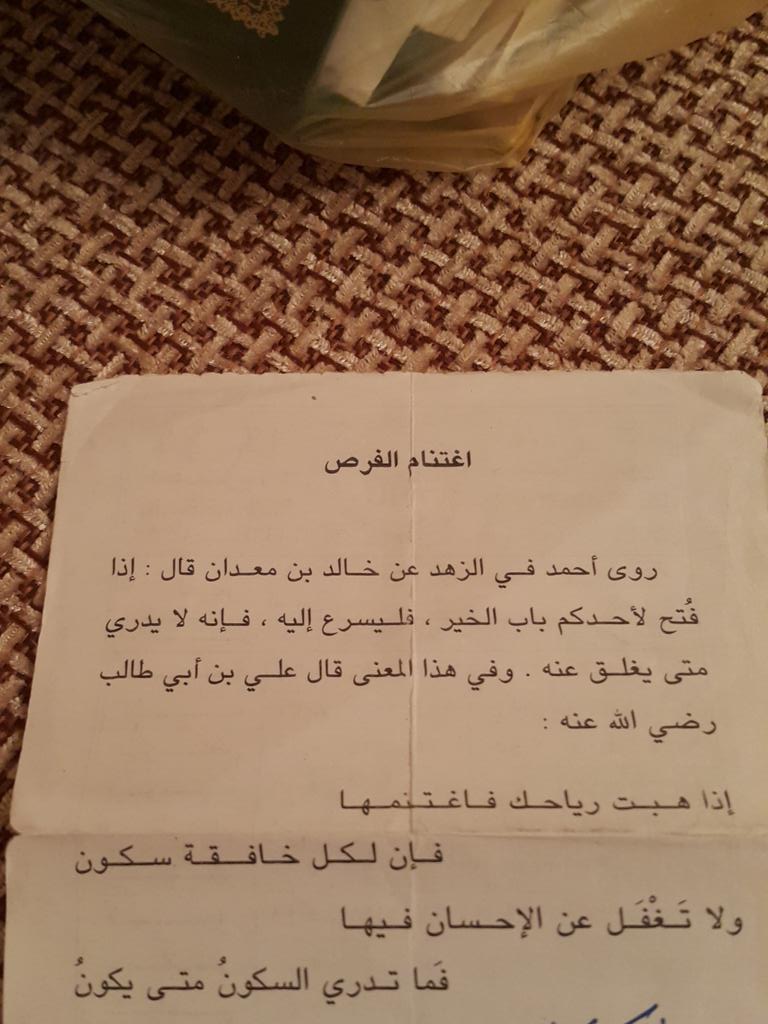 اغتنام الفرص
روى أحمد في الزهد عن خالد بن معدان قال : إذا
فُتح لأحدكم باب الخير ، فليسرع إليه ، فإنه لا يدري
متى يغلق عنه . وفي هذا المعنى قال علي بن أبي طالب
رضي الله عنه :
إذا هبت رياحك فاغتنمها
فإن لكل خافقة سكون
ولا تَغْفَل عن الإحسان فيها
فَما تدري السكونُ متى يكونُ